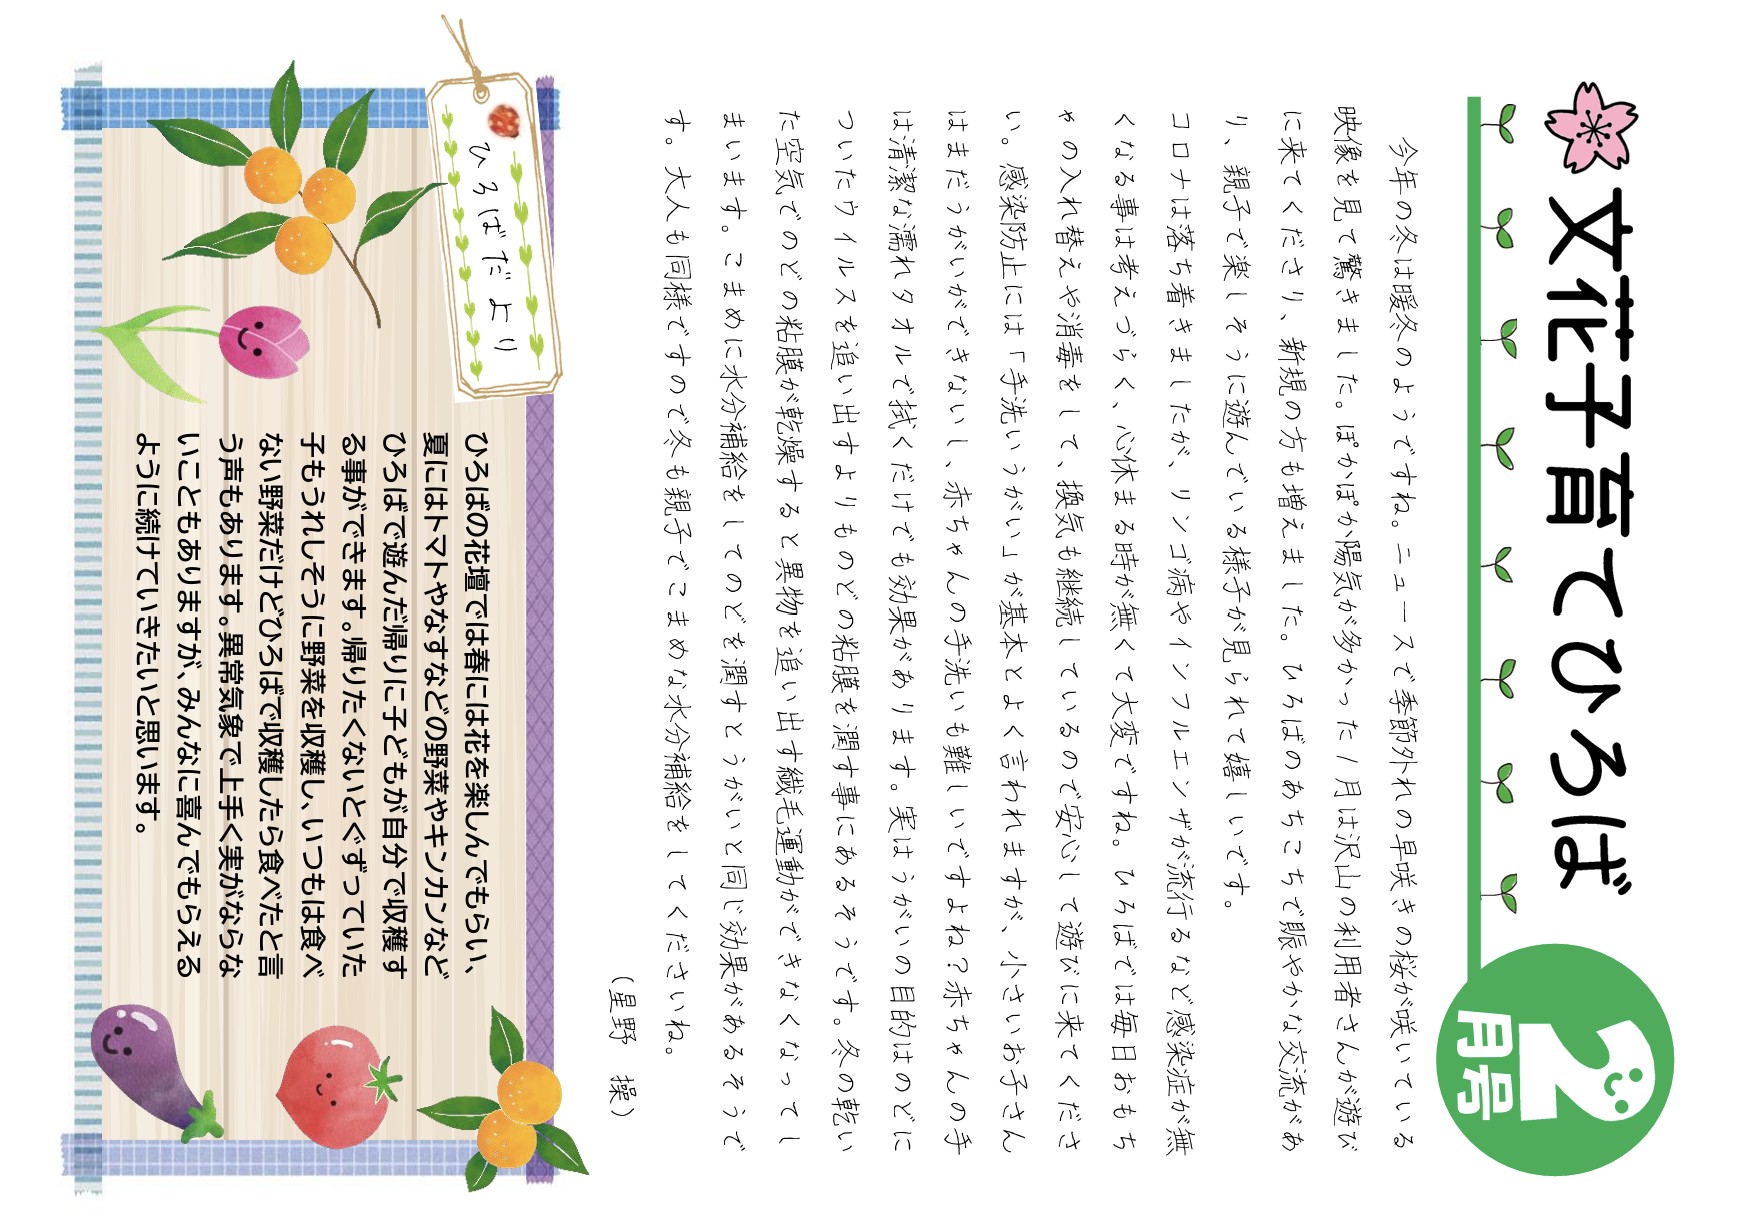 文花子育てひろば
2
月号
今年の冬は暖冬のようですね。ニュースで季節外れの早咲きの桜が咲いている
映像を見て驚きました。ぽかぽか陽気が多かった1月は沢山の利用者さんが遊び
に来てくださり、新規の方も増えました。ひろばのあちこちで賑やかな交流があ
り、親子で楽しそうに遊んでいる様子が見られて嬉しいです。
コロナは落ち着きましたが、リンゴ病やインフルエンザが流行るなど感染症が無
くなる事は考えづらく、心休まる時が無くて大変ですね。ひろばでは毎日おもち
ゃの入れ替えや消毒をして、換気も継続しているので安心して遊びに来てくださ
い。感染防止には「手洗いうがい」が基本とよく言われますが、小さいお子さん
はまだうがいができないし、赤ちゃんの手洗いも難しいですよね？赤ちゃんの手
は清潔な濡れタオルで拭くだけでも効果があります。実はうがいの目的はのどに
ついたウイルスを追い出すよりものどの粘膜を潤す事にあるそうです。冬の乾い
た空気でのどの粘膜が乾燥すると異物を追い出す繊毛運動ができなくなってし
まいます。こまめに水分補給をしてのどを潤すとうがいと同じ効果があるそうで
す。大人も同様ですので冬も親子でこまめな水分補給をしてくださいね。
（星野　操）
ひろばだより
ひろばの花壇では春には花を楽しんでもらい、
夏にはトマトやなすなどの野菜やキンカンなど
ひろばで遊んだ帰りに子どもが自分で収穫す
る事ができます。帰りたくないとぐずっていた
子もうれしそうに野菜を収穫し、いつもは食べ
ない野菜だけどひろばで収穫したら食べたと言
う声もあります。異常気象で上手く実がならな
いこともありますが、みんなに喜んでもらえる
ように続けていきたいと思います。